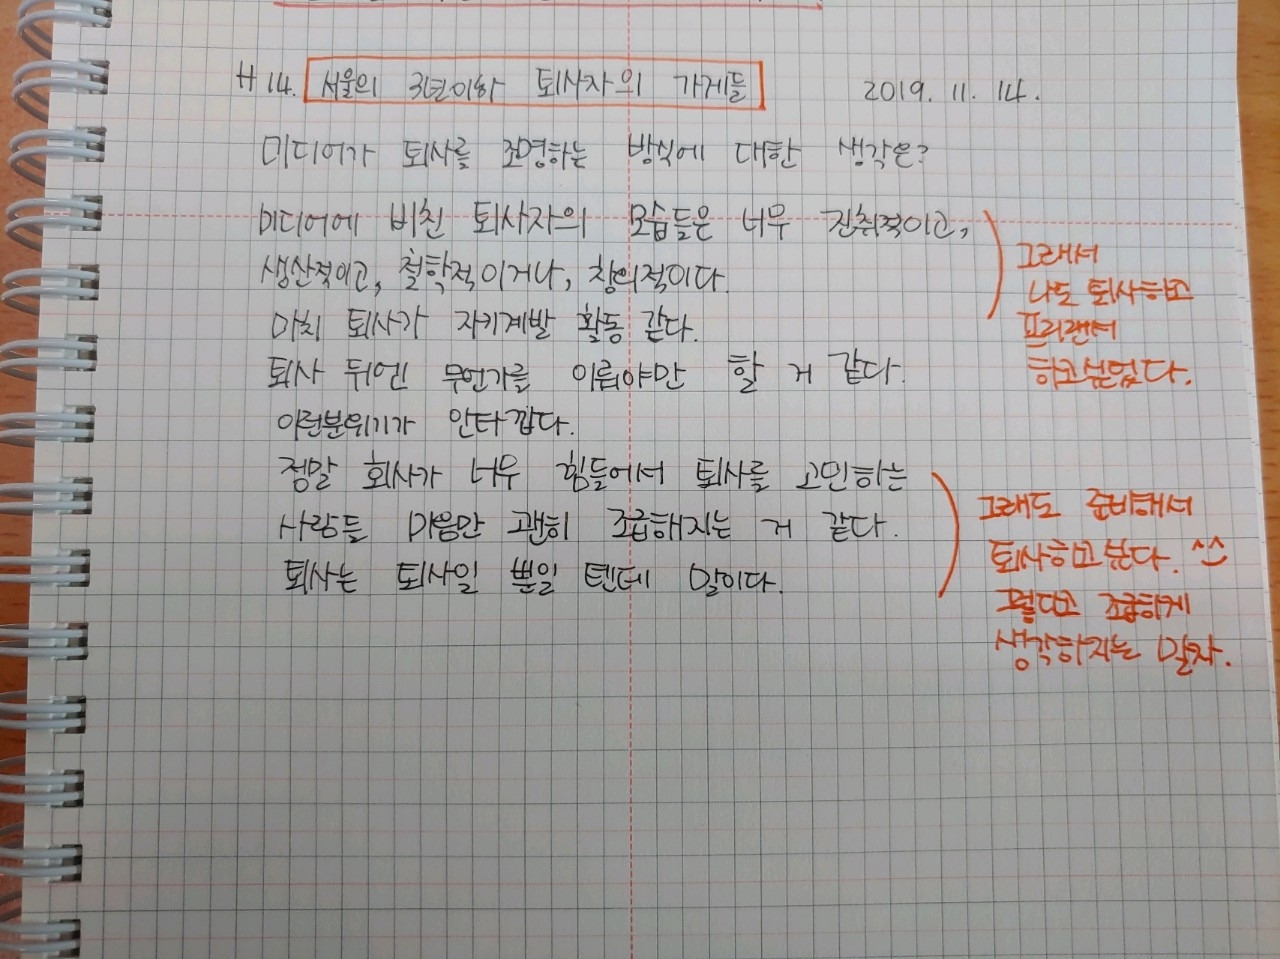 #14. 서울의 3년이하 퇴사자의 가게들 2019. 11. 14.
미디어가 퇴사를 조명하는 방식에 대한 생각은?
미디어에 비친 퇴사자의 모습들은 너무 진취적이고,
생산적이고, 철학적이거나, 창의적이다.
마치 퇴사가 자기계발 활동 같다.
퇴사 뒤엔 무언가를 이뤄야만 할 거 같다.
이런분위기가 안타깝다.
정말 회사가 너무 힘들어서 퇴사를 고민하는
사람들 마음만 괜히 조급해지는 거 같다.
퇴사는 퇴사일 뿐일 텐데 말이다.
그래서
나도 퇴사하고
프리랜서
하고싶었다.
그래도 준비해서
퇴사하고싶다. ^^
그렇다고 조급하게
생각하지는 말자.